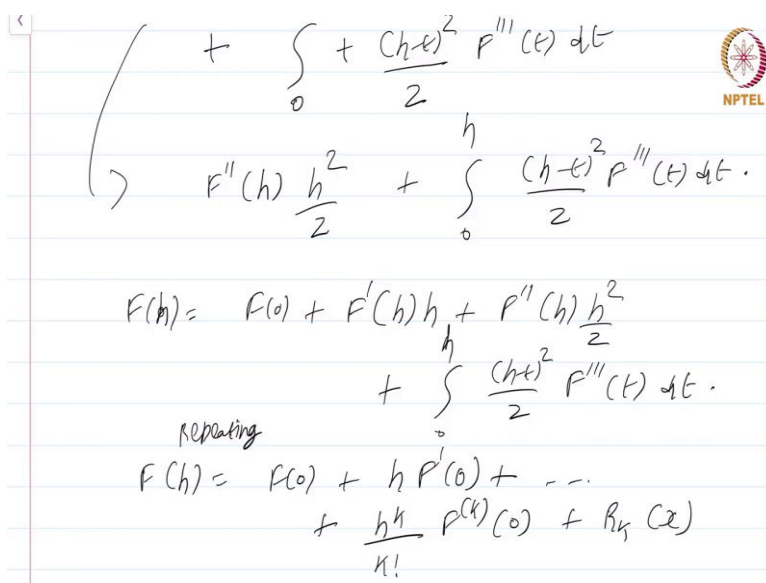 + ∫₀ + (h-t)²/2 F'''(t) dt
NPTEL
F''(h) h²/2 + ∫₀ʰ (h-t)²/2 F'''(t) dt.
F(h) = F(0) + F'(h)h + F''(h) h²/2
+ ∫₀ʰ (h-t)²/2 F'''(t) dt.
Repeating
F(h) = F(0) + h F'(0) + ...
+ hᵏ/k! F⁽ᵏ⁾(0) + Rₖ(x)